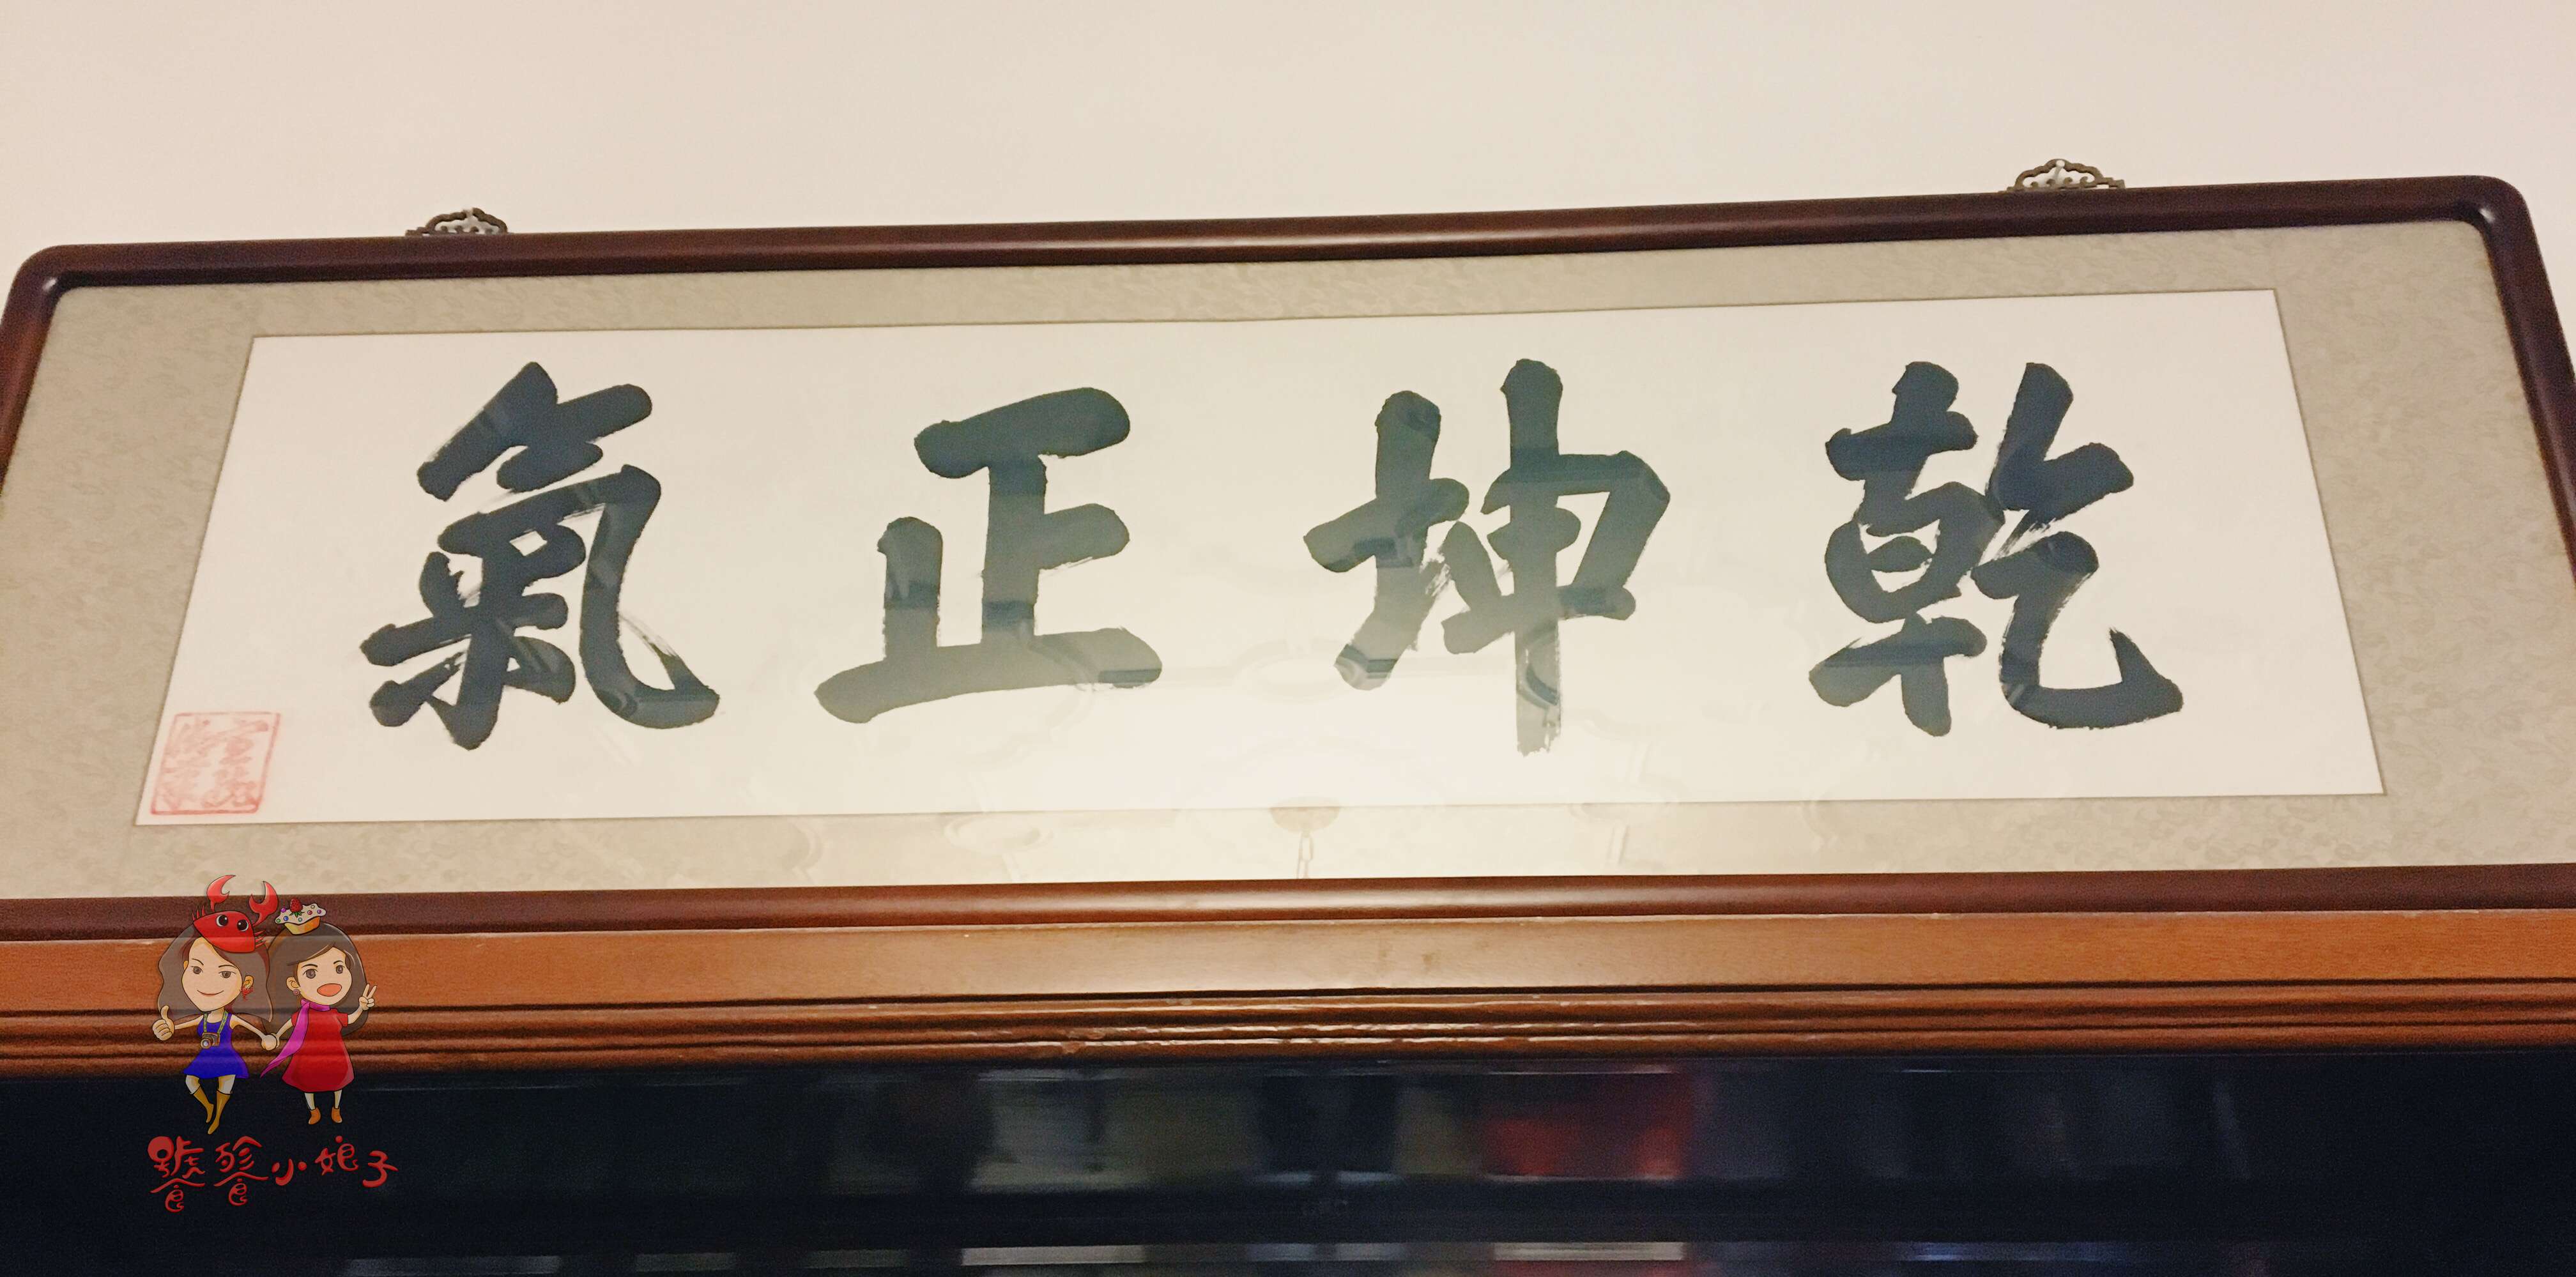 乾坤正氣
饕餮小娘子